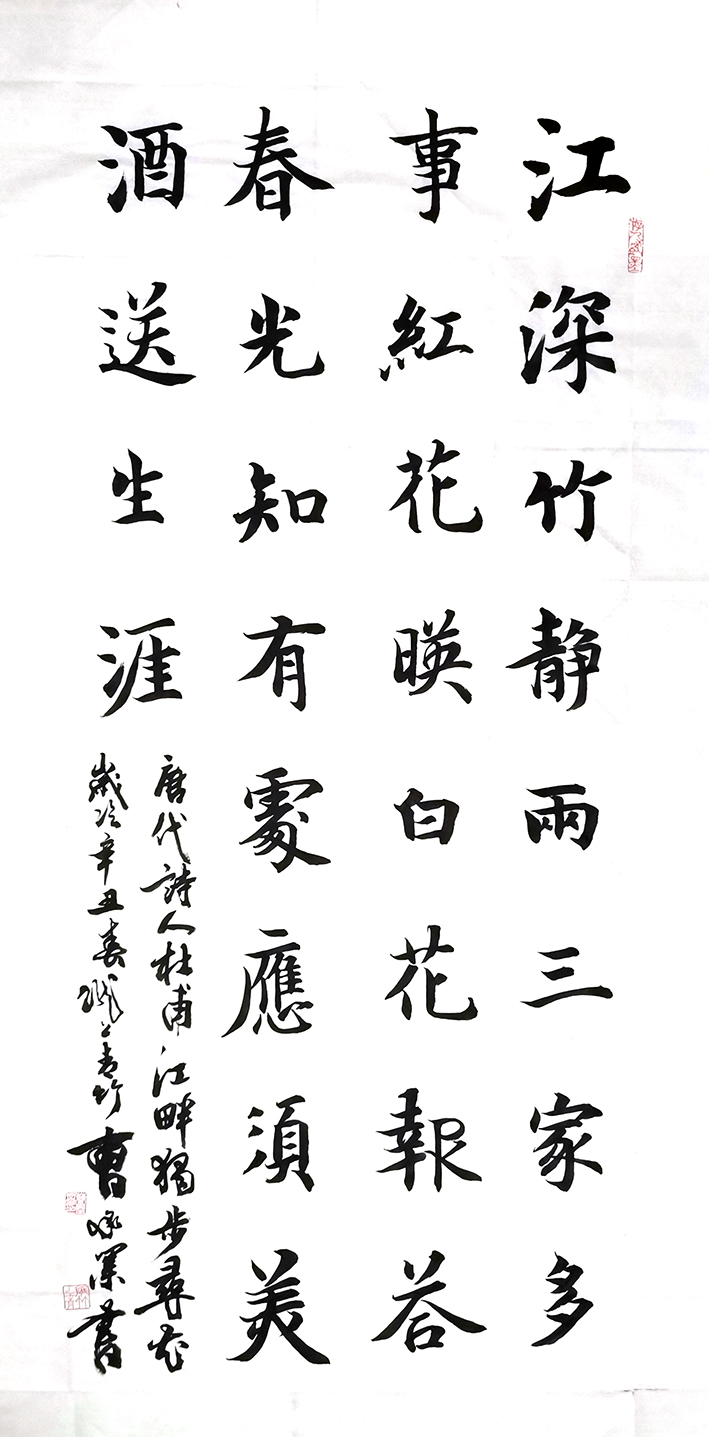 江深竹静兩三家多
事紅花暎白花報荅
春光知有處應須美
酒送生涯
唐代詩人杜甫江畔獨步尋花
歲次辛丑春 青竹曹 墨書